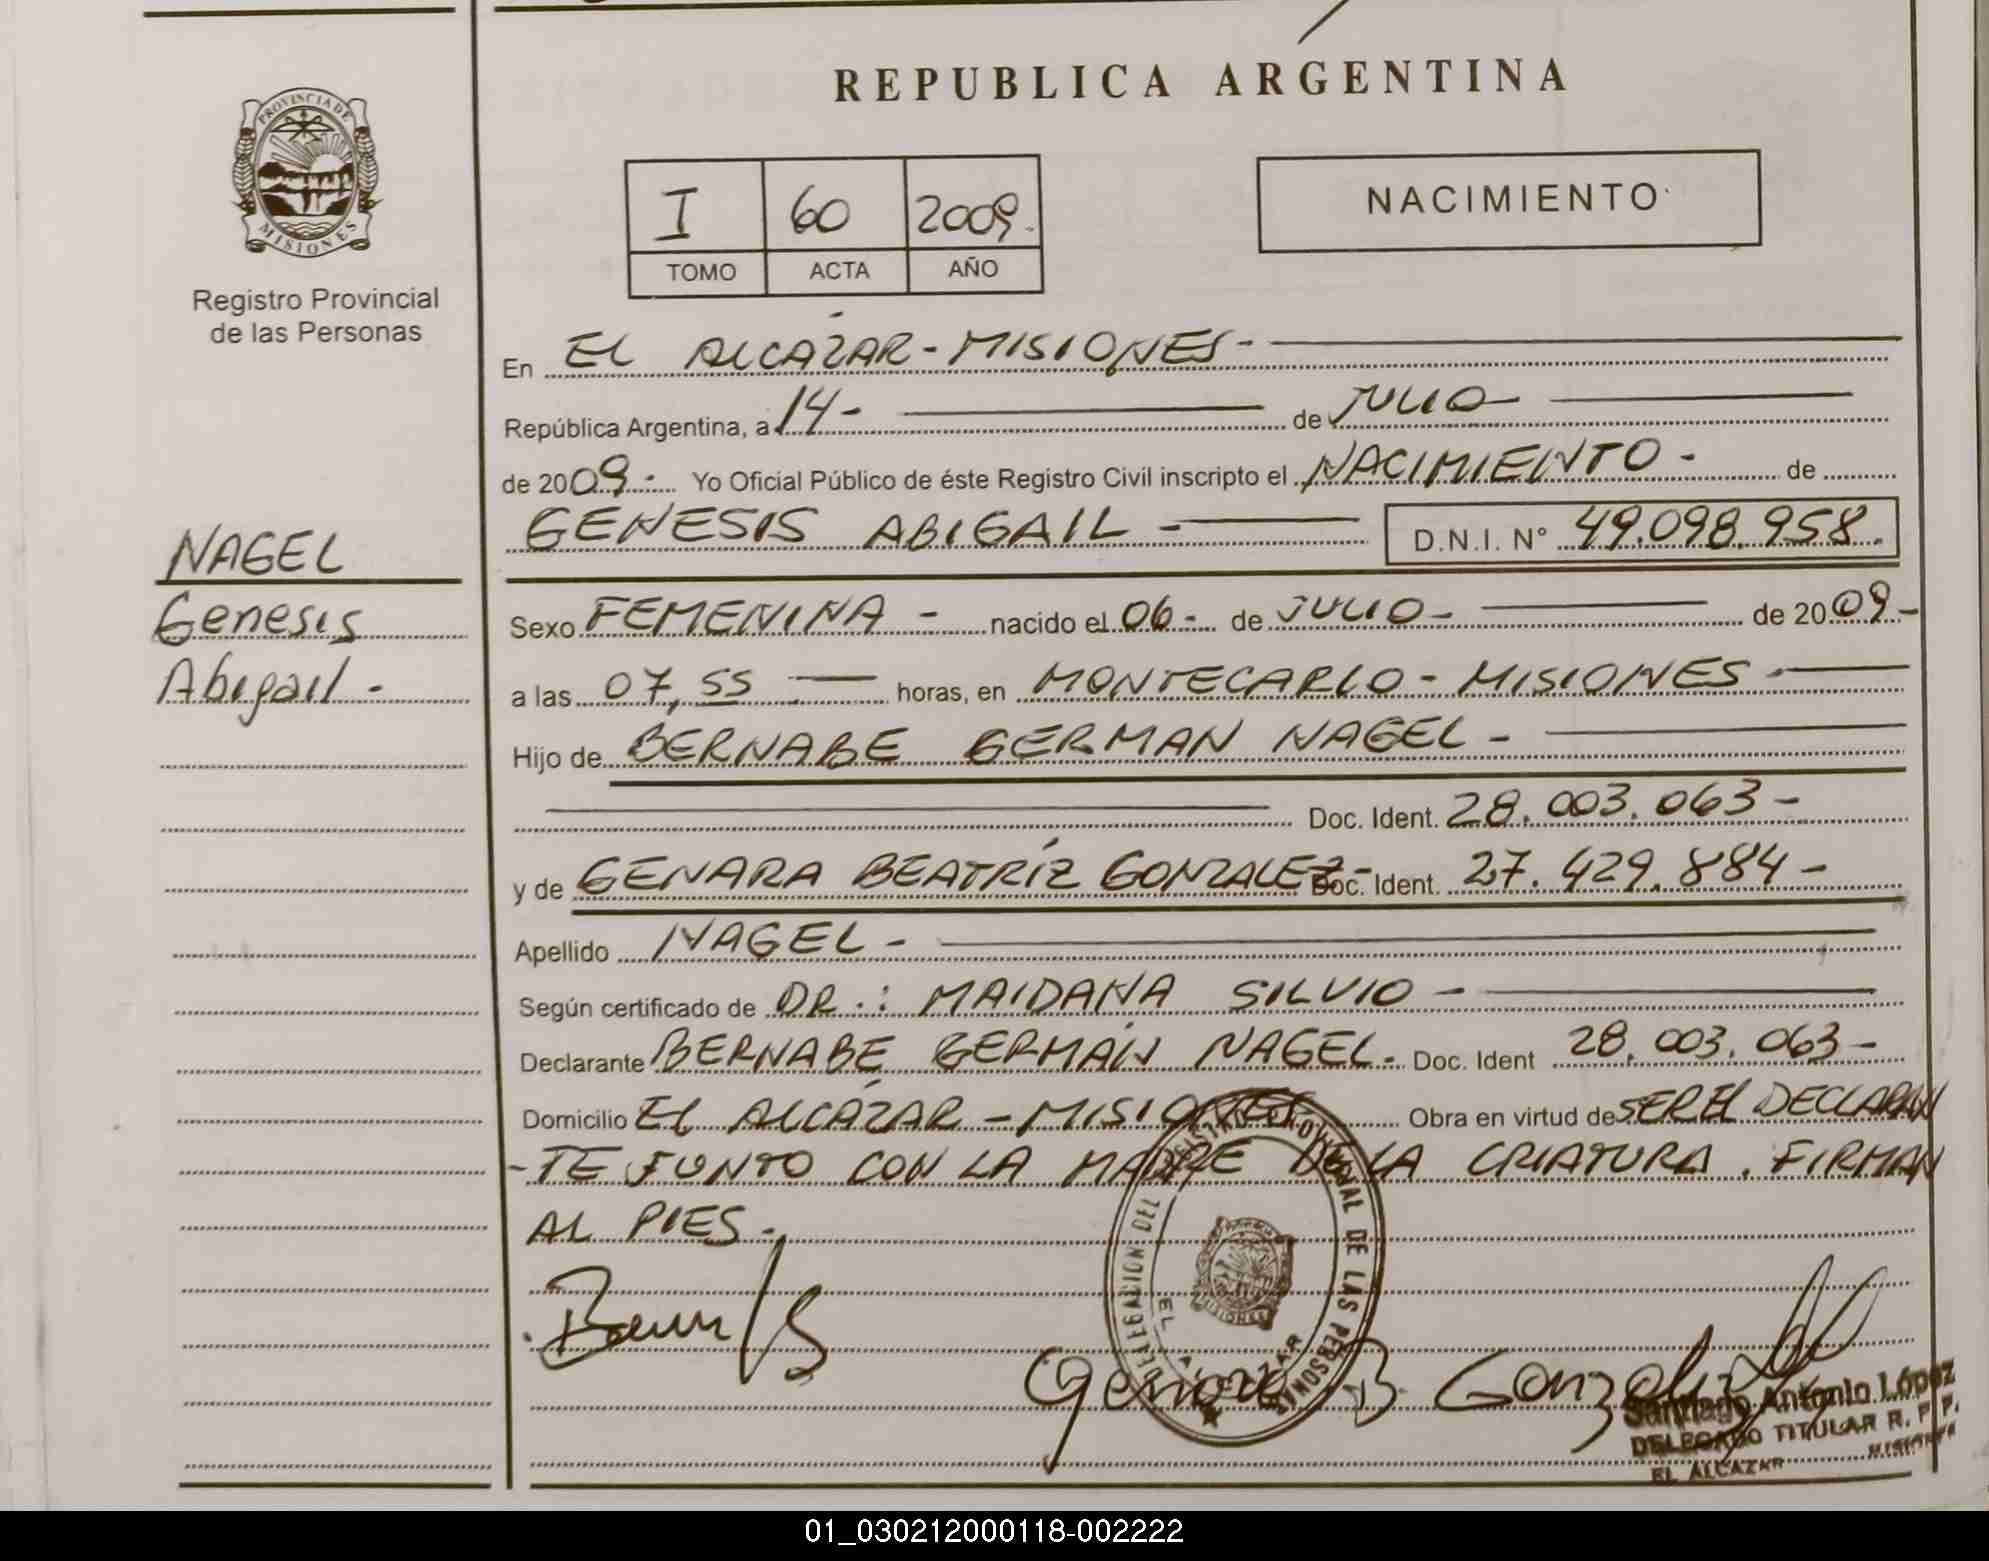 REPUBLICA ARGENTINA
PROVINCIA DE
MISIONES
Registro Provincial
de las Personas
I 60 2009.
TOMO ACTA AÑO
NACIMIENTO
En EL ALCÁZAR - MISIONES -
República Argentina, a 14 - de JULIO -
de 2009 - Yo Oficial Público de éste Registro Civil inscripto el NACIMIENTO - de
GENESIS ABIGAIL - D.N.I. N° 49.098.958.
NAGEL
Genesis
Abigail -
Sexo FEMENINA - nacido el 06 - de JULIO - de 2009 -
a las 07,55 horas, en MONTECARLO - MISIONES -
Hijo de BERNABE GERMAN NAGEL -
Doc. Ident. 28.003.063 -
y de GENARA BEATRÍZ GONZALEZ - Doc. Ident. 27.429.884 -
Apellido NAGEL -
Según certificado de DR.: MAIDANA SILVIO -
Declarante BERNABE GERMÁN NAGEL - Doc. Ident 28.003.063 -
Domicilio EL ALCÁZAR - MISIONES Obra en virtud de SER EL DECLARAN
- TE JUNTO CON LA MADRE DE LA CRIATURA. FIRMAN
AL PIES -
DELEGACION DEL REGISTRO PROVINCIAL DE LAS PERSONAS
EL ALCAZAR
MISIONES
Genara B. Gonzalez
Santiago Antonio López
DELEGADO TITULAR R. P. P.
EL ALCAZAR MISIONES
01_030212000118-002222